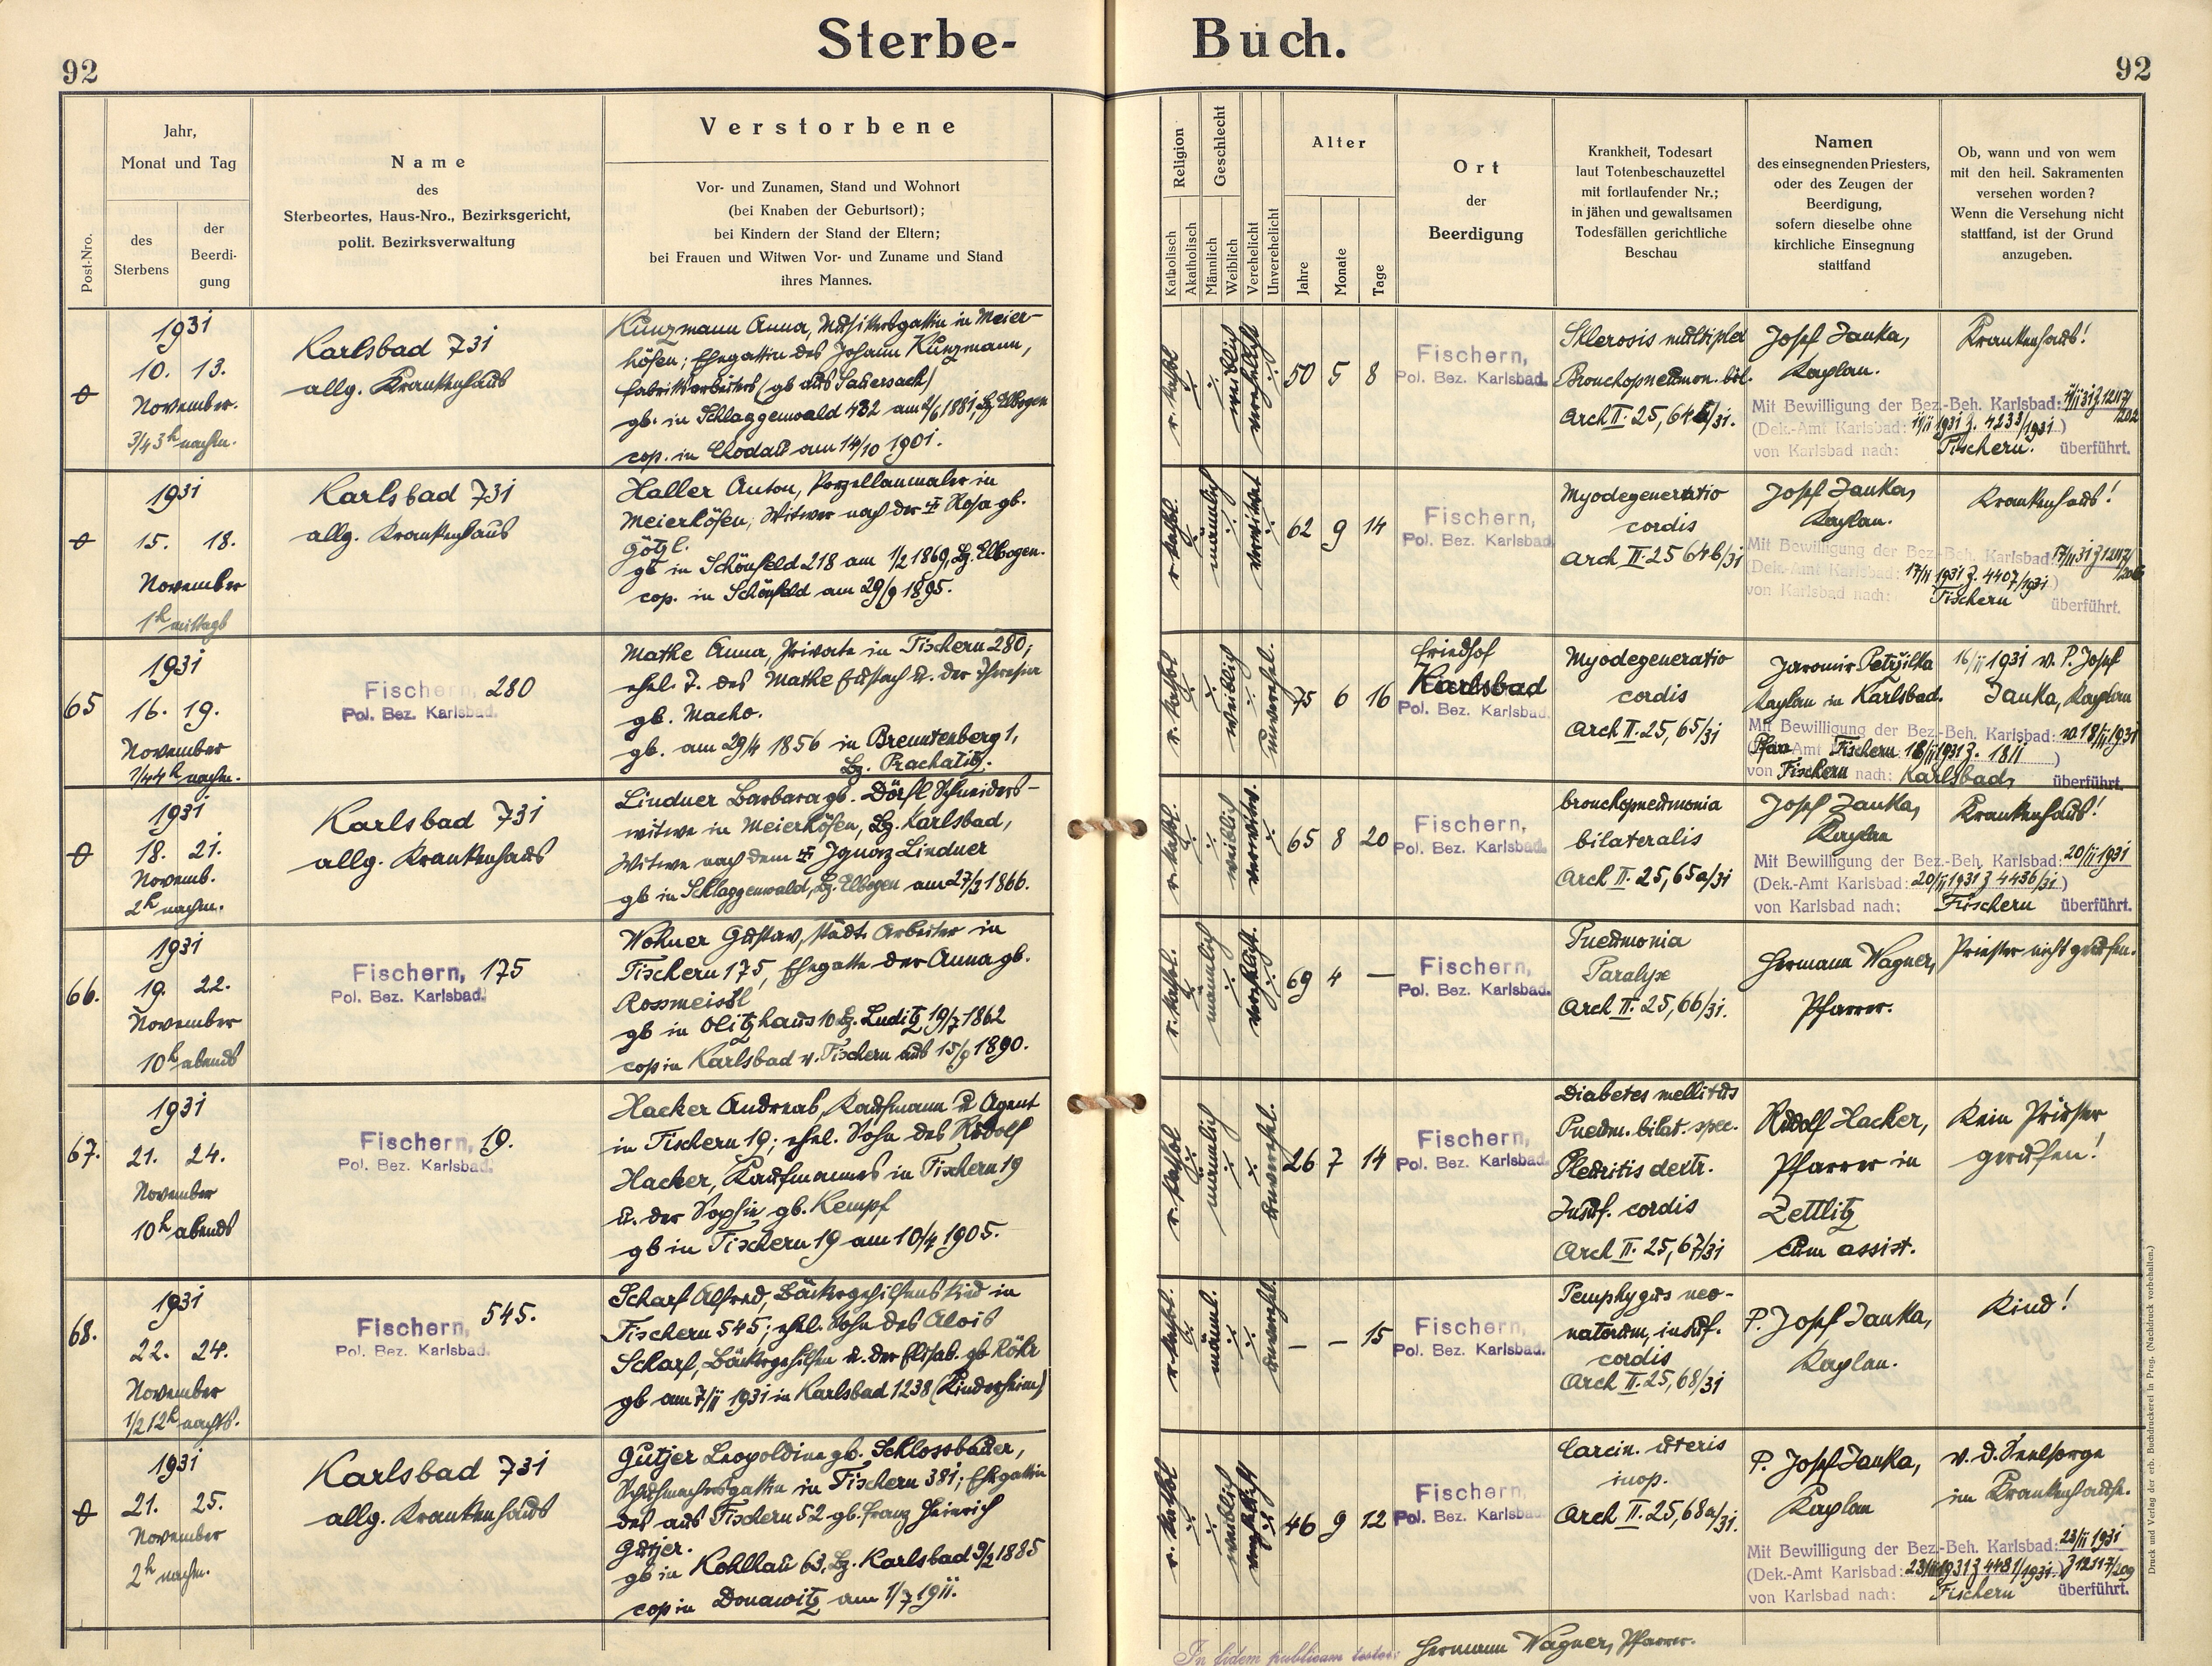 Sterbe- Buch.
92
92
Post-Nro.
Jahr,
Monat und Tag
des
Sterbens
der
Beerdi-
gung
Name
des
Sterbeortes, Haus-Nro., Bezirksgericht,
polit. Bezirksverwaltung
Verstorbene
Vor- und Zunamen, Stand und Wohnort
(bei Knaben der Geburtsort);
bei Kindern der Stand der Eltern;
bei Frauen und Witwen Vor- und Zuname und Stand
ihres Mannes.
Religion
Katholisch
Akatholisch
Geschlecht
Männlich
Weiblich
Verehelicht
Unverehelicht
Alter
Jahre
Monate
Tage
Ort
der
Beerdigung
Krankheit, Todesart
laut Totenbeschauzettel
mit fortlaufender Nr.;
in jähen und gewaltsamen
Todesfällen gerichtliche
Beschau
Namen
des einsegnenden Priesters,
oder des Zeugen der
Beerdigung,
sofern dieselbe ohne
kirchliche Einsegnung
stattfand
Ob, wann und von wem
mit den heil. Sakramenten
versehen worden?
Wenn die Versehung nicht
stattfand, ist der Grund
anzugeben.
1931
10. 13.
November.
3/4 3h nachm.
Karlsbad 731
allg. Krankenhaus
Kunzmann Anna, Musikersgattin in Meier-
höfen; Ehegattin des Johann Kunzmann,
Fabriksarbeiters (gb aus Sauersack)
gb. in Schlaggenwald 432 am 2/6 1881, Bz. Elbogen
cop. in Chodau am 14/10 1901.
r. kathol
weiblich
verehelicht
50 5 8
Fischern,
Pol. Bez. Karlsbad.
Sklerosis multiplex
Bronchopneumon. bil.
Arch II. 25, 64/31.
Josef Janka,
Kaplan.
Krankenhaus!
Mit Bewilligung der Bez.-Beh. Karlsbad:
(Dek.-Amt Karlsbad: 11/11 1931 z. 4233/1931)
von Karlsbad nach: Fischern. überführt.
1931
15. 18.
November
1h mittags
Karlsbad 731
allg. Krankenhaus
Haller Anton, Porzellanmaler in
Meierhöfen; Witwer nach der ‡ Rosa gb.
Götzl.
gb in Schönfeld 218 am 1/2 1869, Bz. Elbogen.
cop. in Schönfeld am 29/9 1895.
r. kathol.
männlich
verwitwet
62 9 14
Fischern,
Pol. Bez. Karlsbad.
Myodegeneratio
cordis
Arch II. 25 64b/31
Josef Janka,
Kaplan.
Krankenhaus!
Mit Bewilligung der Bez.-Beh. Karlsbad:
(Dek.-Amt Karlsbad: 17/11 1931 z. 4407/1931)
von Karlsbad nach: Fischern überführt.
65
1931
16. 19.
November
1/4 4h nachm.
Fischern, 280
Pol. Bez. Karlsbad.
Mathe Anna, Private in Fischern 280;
ehel. T. des Mathe Eustach u. der Theresia
gb. Macho.
gb. am 29/4 1856 in Brenntenberg 1,
Bz. Prachatitz.
r. kathol
weiblich
unverehel.
75 6 16
Friedhof
Karlsbad
Pol. Bez. Karlsbad.
Myodegeneratio
cordis
Arch II. 25, 65/31
Jaromir Petržilka
Kaplan in Karlsbad.
16/11 1931 v. P. Josef
Janka, Kaplan
Mit Bewilligung der Bez.-Beh. Karlsbad: v. 18/11 1931
(Pfarr-Amt Fischern 18/11 1931 z. 1811)
von Fischern nach: Karlsbad, überführt.
1931
18. 21.
Novemb.
2h nachm.
Karlsbad 731
allg. Krankenhaus
Lindner Barbara gb. Dörfl Schneiders-
witwe in Meierhöfen, Bz. Karlsbad,
Witwe nach dem ‡ Ignaz Lindner
gb in Schlaggenwald, Bz. Elbogen am 27/2 1866.
r. kathol.
weiblich
verwitwet.
65 8 20
Fischern,
Pol. Bez. Karlsbad.
bronchopneumonia
bilateralis
Arch II. 25, 65a/31
Josef Janka,
Kaplan
Krankenhaus!
Mit Bewilligung der Bez.-Beh. Karlsbad: 20/11 1931
(Dek.-Amt Karlsbad: 20/11 1931 z 4436/31)
von Karlsbad nach: Fischern überführt.
66.
1931
19. 22.
November
10h abends
Fischern, 175
Pol. Bez. Karlsbad.
Wohner Gustav, städt. Arbeiter in
Fischern 175, Ehegatte der Anna gb.
Rossmeissl
gb in Olitzhaus 10 Bz. Luditz 19/7 1862
cop in Karlsbad v. Fischern aus 15/9 1890.
r. kathol.
männlich
verehelicht.
69 4 —
Fischern,
Pol. Bez. Karlsbad.
Pneumonia
Paralyse
Arch II. 25, 66/31.
Hermann Wagner,
Pfarrer.
Priester nicht gerufen.
67.
1931
21. 24.
November
10h abends
Fischern, 19.
Pol. Bez. Karlsbad.
Hacker Andreas, Kaufmann u. Agent
in Fischern 19; ehel. Sohn des Rudolf
Hacker, Kaufmannes in Fischern 19
u. der Sophie gb. Kempf
gb in Fischern 19 am 10/4 1905.
r. kathol
männlich
unverehel.
26 7 14
Fischern,
Pol. Bez. Karlsbad.
Diabetes mellitus
Pneum. bilat. spec.
Pleuritis dextr.
Insuf. cordis
Arch II. 25, 67/31
Rudolf Hacker,
Pfarrer in
Zettlitz
cum assist.
Kein Priester
gerufen!
68.
1931
22. 24.
November
1/2 12h nachts.
Fischern, 545.
Pol. Bez. Karlsbad.
Scharf Alfred, Bäckergehilfenskind in
Fischern 545; ehel. Sohn des Alois
Scharf, Bäckergehilfen u. der Elisab. gb Röhr
gb am 7/11 1931 in Karlsbad 1238 (Kinderheim)
r. kathol.
männl.
unverehel.
— — 15
Fischern,
Pol. Bez. Karlsbad.
Pemphygus neo-
natorum, insuf.
cordis
Arch II. 25, 68/31
P. Josef Janka,
Kaplan.
Kind!
1931
21. 25.
November
2h nachm.
Karlsbad 731
allg. Krankenhaus
Gutjer Leopoldine gb. Schlossbauer,
Schuhmachersgattin in Fischern 381; Ehegattin
des aus Fischern 52 gb. Franz Heinrich
Gutjer.
gb in Kohlhau 63, Bz. Karlsbad 9/2 1885
cop in Donawitz am 1/7 1911.
r. kathol
weiblich
verehelicht
46 9 12
Fischern,
Pol. Bez. Karlsbad.
Carcin. uteris
inop.
Arch II. 25, 68a/31.
P. Josef Janka,
Kaplan
v. d. Seelsorge
im Krankenhause.
Mit Bewilligung der Bez.-Beh. Karlsbad: 23/11 1931
(Dek.-Amt Karlsbad: 23/11 1931 z 4481/1931.) z 12117/209
von Karlsbad nach: Fischern überführt.
In fidem publicam testor: Hermann Wagner, Pfarrer.
Druck und Verlag der erb. Buchdruckerei in Prag. (Nachdruck vorbehalten.)